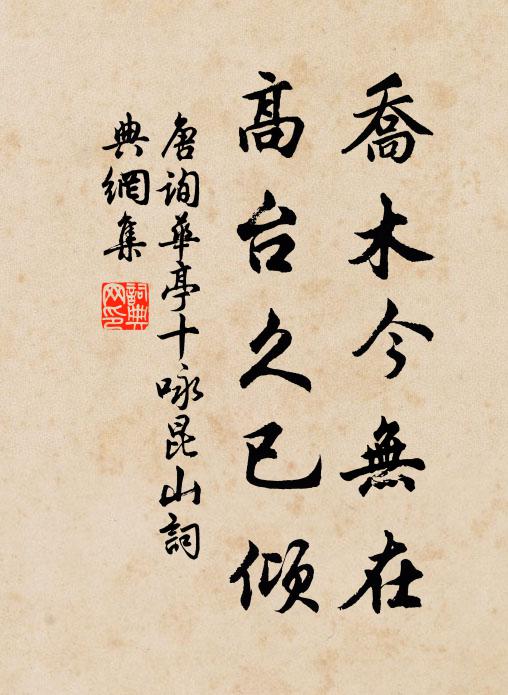 喬木今無在
高台久已傾
唐詢華亭十咏昆山詞
典網集
詞典
网印